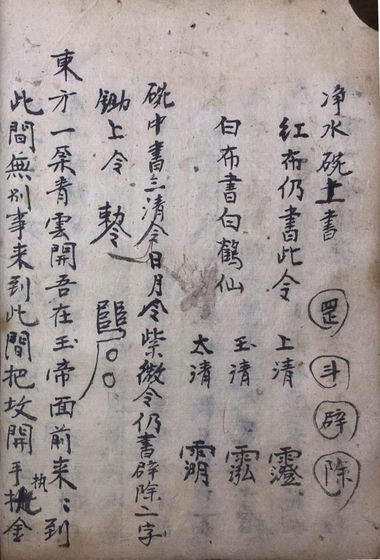 净水碗上書 罡斗辟除
紅布仍書此令 上清
玉清
白布書白鶴仙 太清
碗中書三清令日月令紫微令仍書辟除二字
鋤上令
東方一朶青雲開吾在玉帝面前来〻到
此間無别事来到此間把坟開手执金